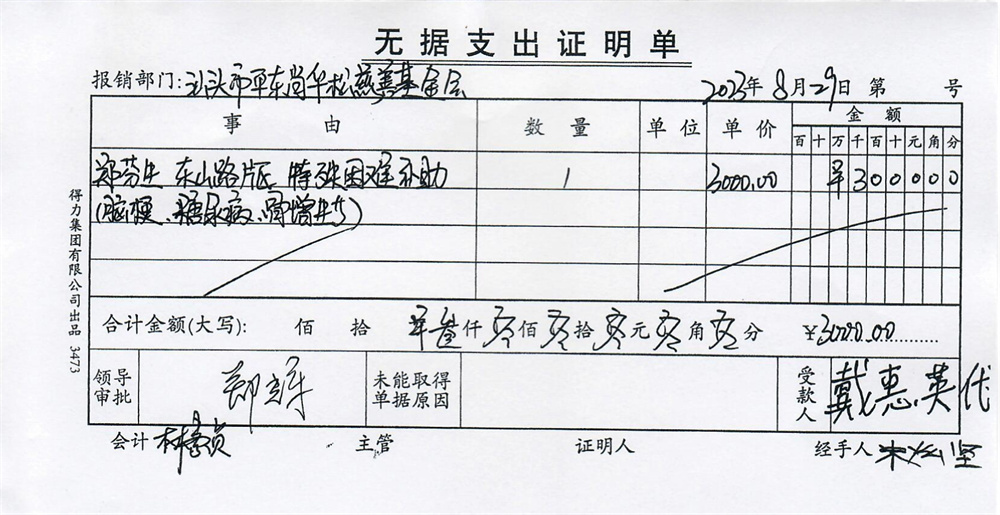 无据支出证明单
报销部门:汕头市平东尚华松慈善基金会 2023年8月29日 第 号
事由 数量 单位 单价 金额
百十万千百十元角分
郑芬生 东山路版 特殊困难补助 1 3000.00 ¥300000
(脑梗、糖尿病、骨增生)
合计金额(大写): 佰 拾 ¥叁仟零佰零拾零元零角零分 ¥3000.00
领导审批 未能取得单据原因 受款人 戴惠英代
会计 主管 证明人 经手人
得力集团有限公司出品 3473